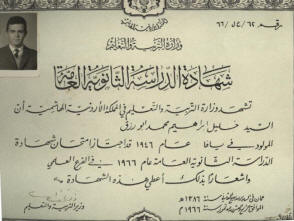 رقم ٦٢/ك/٦٦
وزارة التربية والتعليم
شهادة الدراسة الثانوية العامة
تشهد وزارة التربية والتعليم في المملكة الأردنية الهاشمية أن
السيد خليل إبراهيم محمد أبو رزق
المولود في يافا عام ١٩٤٦ قد اجتاز امتحان شهادة
الدراسة الثانوية العامة عام ١٩٦٦ في الفرع العلمي
وإشعارا بذلك أعطي هذه الشهادة
عمان في
١٣٨٦ هـ
١٩٦٦ م
وزير التربية والتعليم